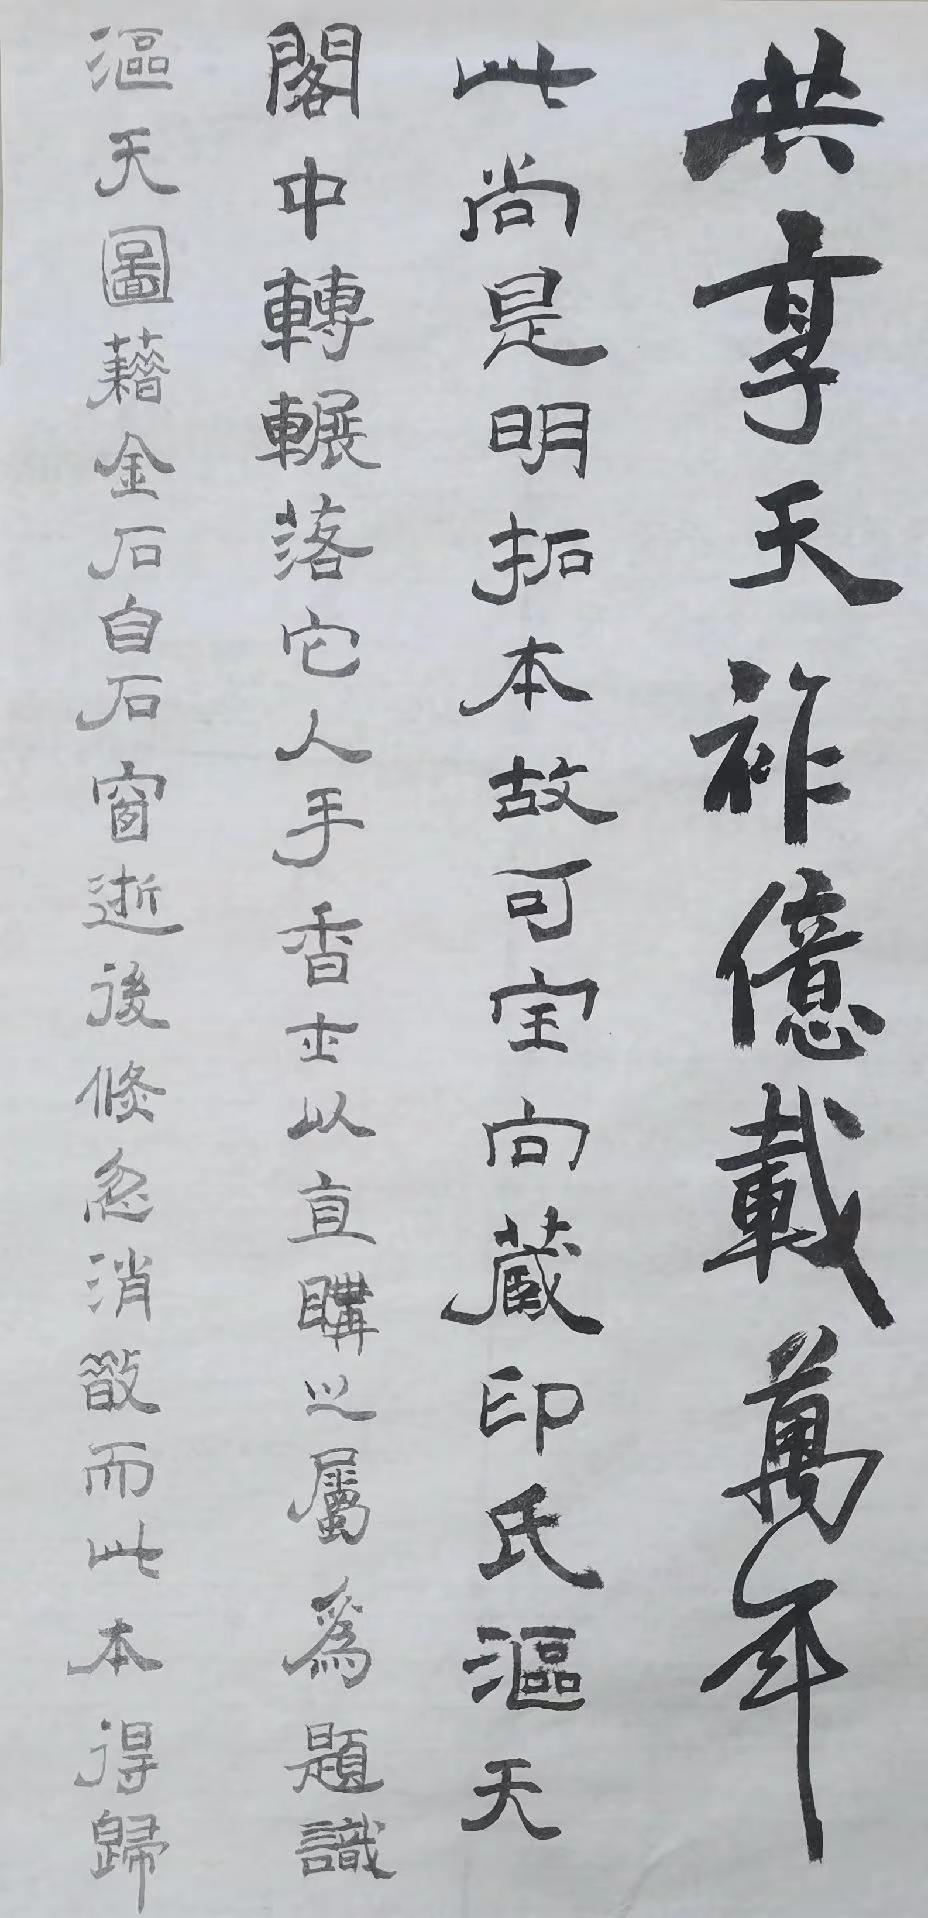 共享天祚億載萬年
此尚是明拓本故可宝向藏印氏漚天
閣中轉輾落它人手香士以直購之屬爲題識
漚天圖藉金石自石窗逝後倏忽消散而此本得歸